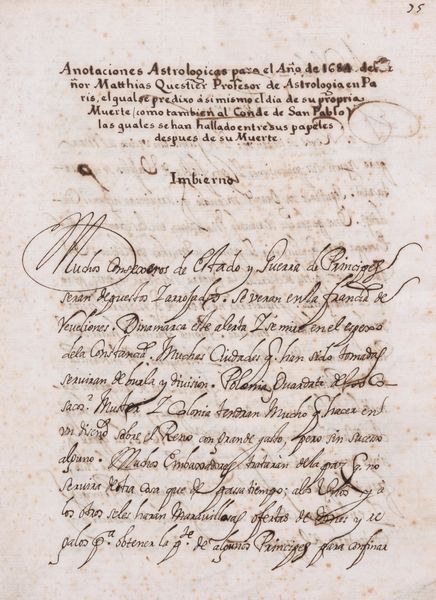 35
Anotaciones Astrologicas para el Año de 1684. del Se
ñor Matthias Questier Profesor de Astrologia en Pa
ris, el qual se predixo á si mismo el dia de su propria
Muerte, como tambien al Conde de San Pablo y
las quales se han hallado entre sus papeles
despues de su Muerte
Imbierno
Muchos Consegeros de Estado y Guerra de Principes
seran depuestos Zarrosados. Se veran en la Francia de
Dinamarca esté alerta, Z se mire en el espexo
de la Constancia. Muchas Ciudades q han sido tomadas
serviran de burla y division. Polonia Guardate de los Co
sacos. Munster Z Colonia tendran Mucho q hacer en
un diseño sobre el Reno con grande gasto, pero sin suceso
alguno. Muchos Embaxadores trataran de la paz q no
servira de otra cosa que de gastar tiempo; a los Unos y a
los otros se les haran Maravillosas ofertas de dones y re
galos pa obtener la de algunos Principes para confinar